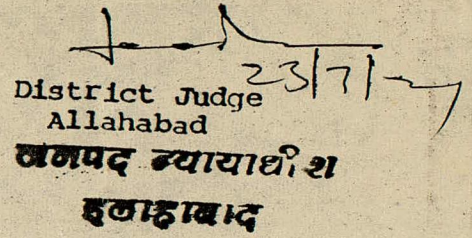 23/7/
District Judge
Allahabad
जनपद न्यायाधीश
इलाहाबाद